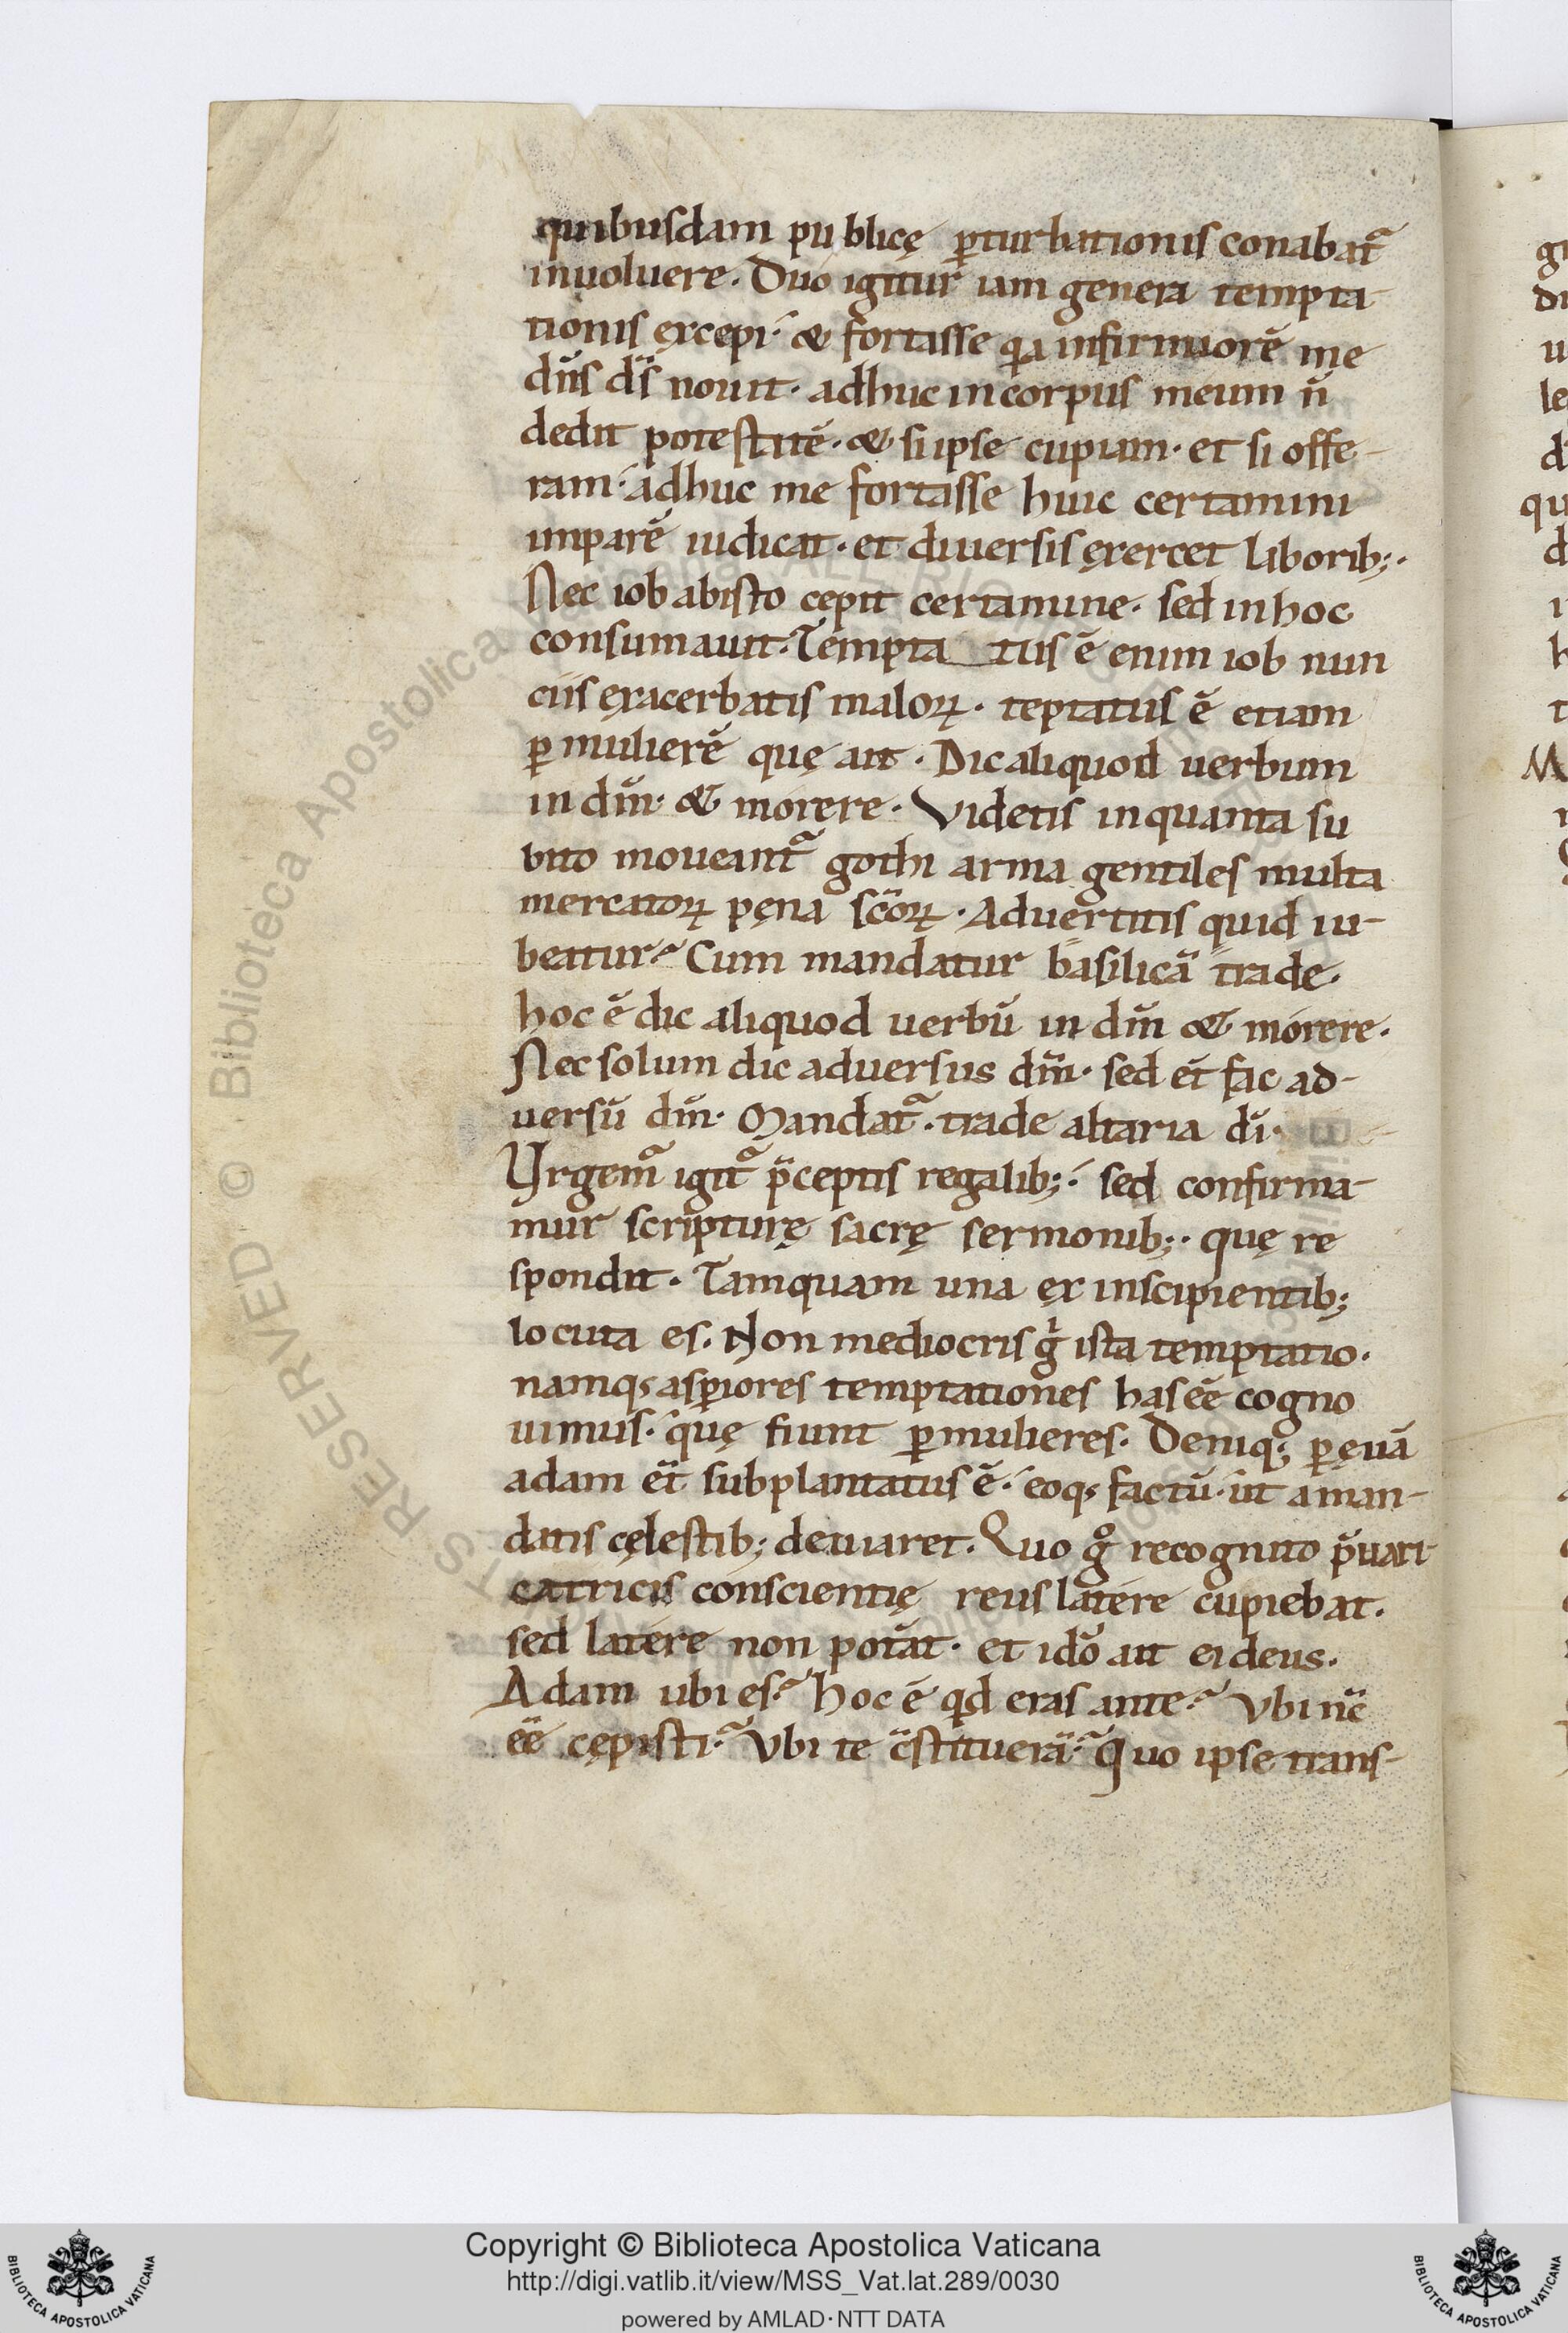 quibusdam publicę p̄turbationis conabat᷑
inuoluere. Duo igitur iam genera tempta
tionis ęxcepi· & fortasse qa infirmiorē me
dn̄s ds̄ nouit· adhuc in corpus meum n̄
dedit potestatē· & si ipse cupiam· et si offe-
ram· adhuc me fortasse huic certamini
imparē iudicat· et diuersis ęxercet laborib;·
Nec iob ab isto cepit certamine· sed in hoc
consumauit. Tempta tus ē enim iob nun
ciis ęxacerbatis maloꝝ· teptatus ē etiam
p̄ mulierē quę ait· Dic aliquod uerbum
in dm̄· & morere· Videtis in quanta su
bito moueant᷑ gothi arma gentiles multa
mercatoꝝ pęna sc̄oꝝ· Aduertitis quid iu-
beatur? Cum mandatur basilicā trade·
hoc ē dic aliquod uerbū in dm̄ & morere·
Nec solum dic aduersus dm̄· sed et̄ fac ad-
uersū dm̄· Mandat᷑· trade altaria dī·
Vrgem᷑ igit᷑ p̄ceptis regalib;· sed confirma-
mur scripturę sacrę sermonib;· quę re
spondit· Tamquam una ęx inscipientib;
locuta es. Non mediocris g̍ ista temptatio·
namq; asp̄iores temptationes has eē cogno
uimus· quę fiunt p̄ mulieres· Deniq; p̄ ęuā
adam et̄ subplantatus ē· eoq; factū· ut a man-
datis cęlestib; deuiaret. Quo gͦ recognito p̄uari
catricis conscientię reus latere cupiebat·
sed latere non potāt· et idō ait ei deus·
Adam ubi es? hoc ē qd eras ante? Vbi nc̄
eē cępisti? Vbi te c̄stituerā? Quo ipse trans-
gr
di
u
le
d
qu
d
i
h
t
M
Copyright © Biblioteca Apostolica Vaticana
http://digi.vatlib.it/view/MSS_Vat.lat.289/0030
powered by AMLAD·NTT DATA
BIBLIOTECA APOSTOLICA VATICANA
BIBLIOTECA APOSTOLICA VATICANA